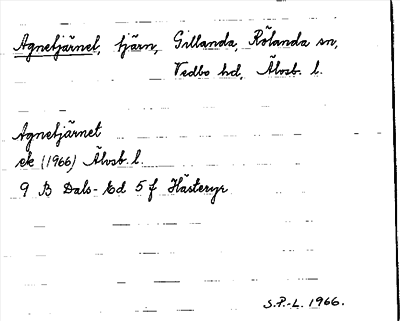 Agnetjärnet, tjärn, Gillanda, Rölanda sn,
Vedbo hd, Älvsb. l.
Agnetjärnet
ek (1966) Älvsb. l.
9 B Dals-Ed 5 f Hästeryr
S.P.-L. 1966.